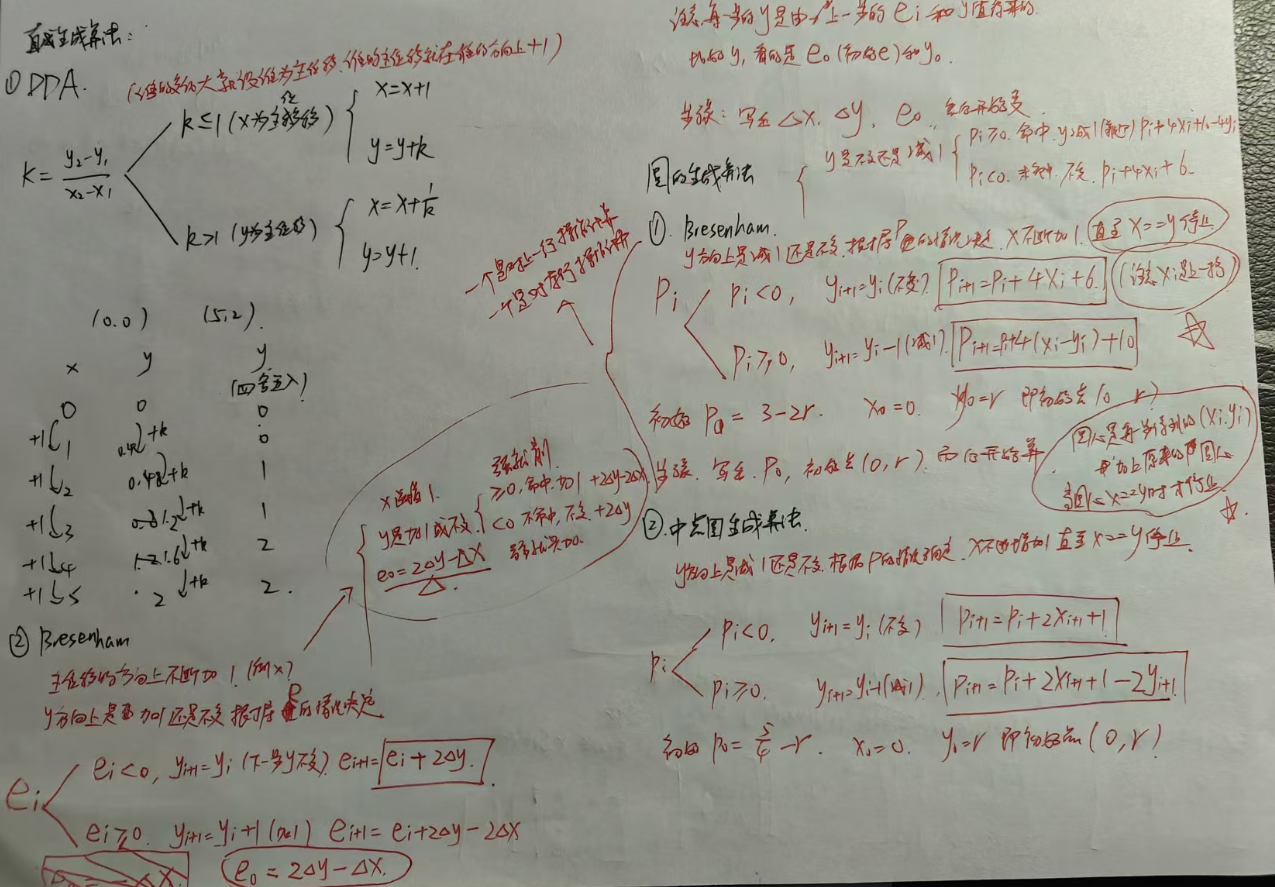 直线生成算法:
① DDA.
k = (y₂-y₁)/(x₂-x₁)
k≤1 (x为主位移)
x=x+1
y=y+k
k>1 (y为主位移)
x=x+1/k
y=y+1.
(0.0) (5,2).
x y y
(四舍五入)
0 0 0
+1 1 0.4 +k 0
+1 2 +k 1
+1 3 1.2 +k 1
+1 4 1.6 +k 2
+1 5 2 +k 2.
② Bresenham
主位移的方向上不断加1. (例x)
y方向上是加1还是不变 根据 的情况决定
eᵢ
eᵢ<0, yᵢ₊₁=yᵢ (下一步y不变) eᵢ₊₁=eᵢ+2Δy.
eᵢ≥0. yᵢ₊₁=yᵢ+1 (加1) eᵢ₊₁=eᵢ+2Δy-2Δx
e₀=2Δy-Δx.
x递增1.
y是加1或不变
≥0, 命中. 加1 +2Δy-2Δx
<0 不命中, 不变. +2Δy
e₀=2Δy-Δx
注意每一步的y是由上一步的eᵢ和y值得来的.
比如y, 看的是e₀(初始e)和y₀.
步骤: 写出Δx. Δy, e₀.
圆的生成算法
y是不变还是减1
Pᵢ≥0. 命中. y减1 Pᵢ+4xᵢ+10-4yᵢ
Pᵢ<0. 未命中. 不变. Pᵢ+4xᵢ+6
① Bresenham.
y方向上是减1还是不变. 根据P的情况决定. x不断加1. 直至x==y停止
Pᵢ
Pᵢ<0, yᵢ₊₁=yᵢ(不变). Pᵢ₊₁=Pᵢ+4xᵢ+6. (注意xᵢ是上一步)
Pᵢ≥0, yᵢ₊₁=yᵢ-1(减1). Pᵢ₊₁=Pᵢ+4(xᵢ-yᵢ)+10
初始P₀=3-2r. x₀=0. y₀=r 即初始点(0, r)
步骤. 写出P₀, 初始点(0,r). 而后开始算.
圆心是每步得到的(xᵢ,yᵢ)
加上原来的圆心
x==y时才停止
② 中点圆生成算法.
y方向上是减1还是不变. 根据P的情况确定. x不断增加1 直至x==y停止.
Pᵢ
Pᵢ<0. yᵢ₊₁=yᵢ(不变) Pᵢ₊₁=Pᵢ+2xᵢ₊₁+1.
Pᵢ≥0. yᵢ₊₁=yᵢ-1(减1). Pᵢ₊₁=Pᵢ+2xᵢ₊₁+1-2yᵢ₊₁.
初始P₀=5/4-r. x₀=0. y₀=r 即初始点(0,r)